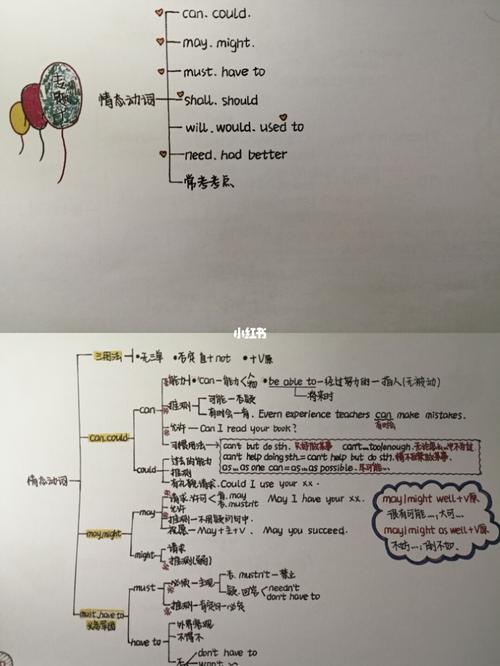 can. could.
may. might.
must. have to
情态动词
shall. should
will. would. used to
need. had better
常考考点
小红书
三用法 无三单 否变 直+not +V原
can.could
can
能力 can-能力 人 物 be able to-经过努力的-指人(无被动)
将来时
推测 可能-否疑
有时会-肯. Evern experience teachers can make mistakes.
有时会
允许- Can I read your book?
习惯用法 can't but do sth. can't...too/enough.
can't help doing sth = can't help but do sth.
as...as one can = as...as possible. 尽可能...
could
过去的能力
推测
有礼貌请求. Could I use your xx.
情态动词
may.might
may
请求.许可 肯.may May I have your xx.
否.mustn't
允许
推测-不用疑问句中.
祝愿-May+主+V. May you succeed.
might
请求
推测(弱)
may/might well+V原
很有可能...,大可...
may/might as well+V原
不妨...,倒不如.
must.have to
must
必须-主观 否.mustn't-禁止
疑.回答 needn't
don't have to
推测-肯定句-必定
have to
外界客观
不得不
否 don't have to
won't